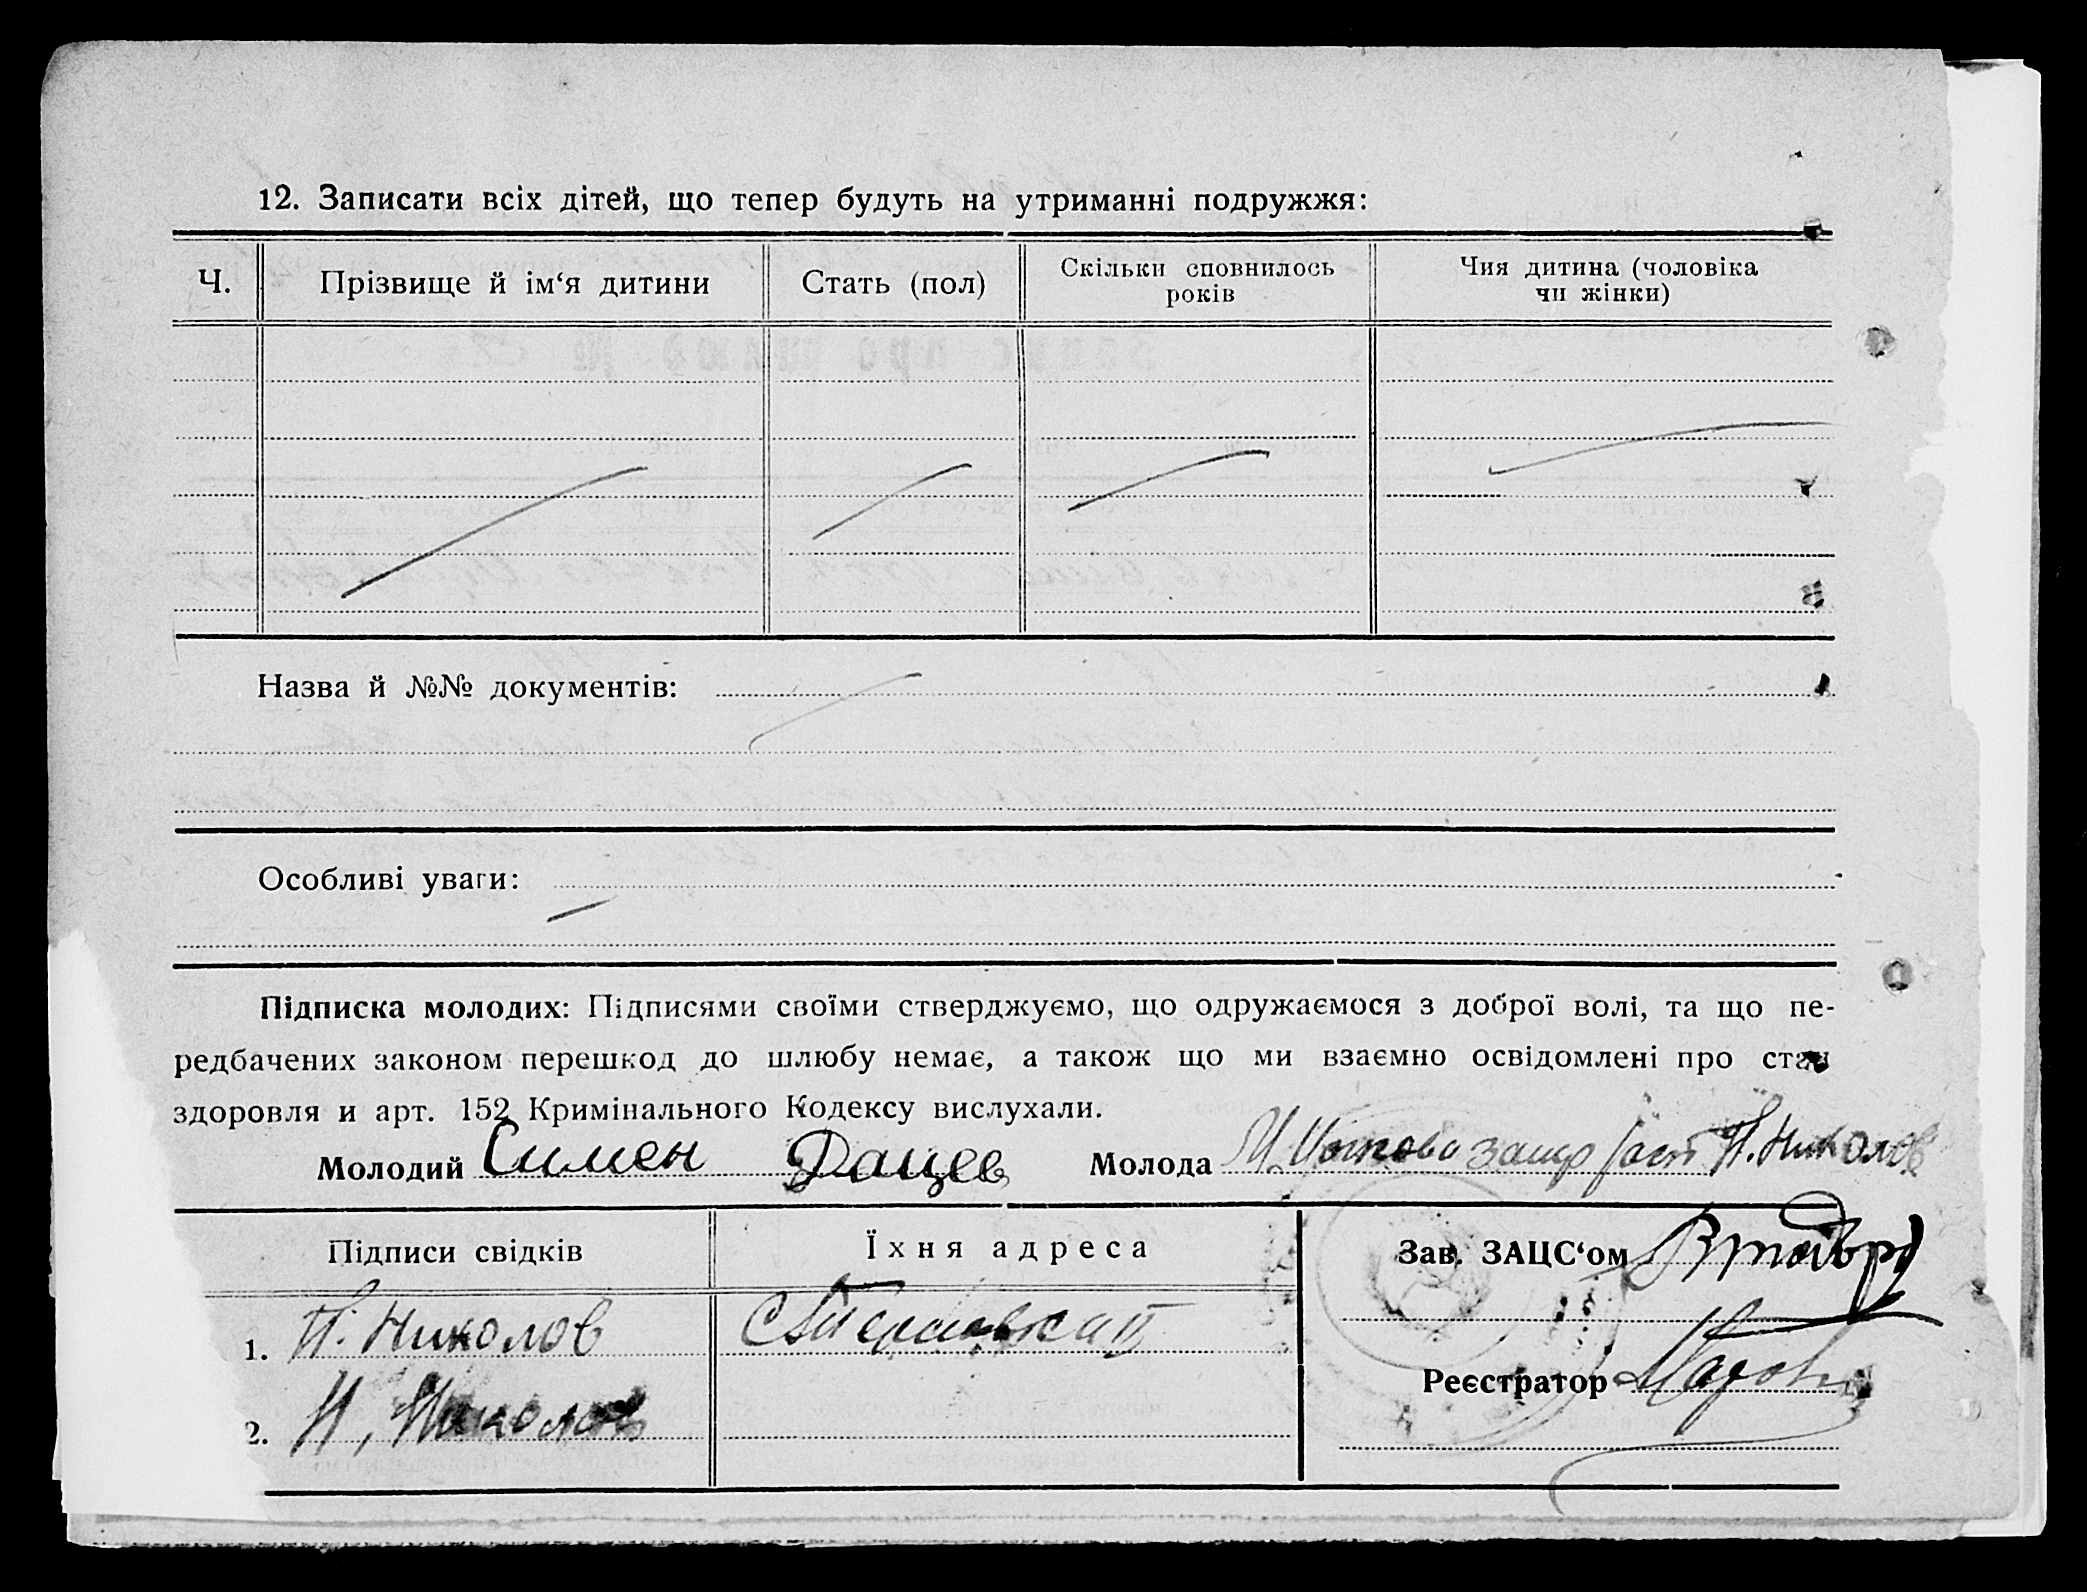 12. Записати всіх дітей, що тепер будуть на утриманні подружжя:
Ч. Прізвище й ім‘я дитини Стать (пол) Скільки сповнилось років Чия дитина (чоловіка чи жінки)
Назва й №№ документів:
Особливі уваги:
Підписка молодих: Підписями своїми стверджуємо, що одружаємося з доброї волі, та що пе-
редбачених законом перешкод до шлюбу немає, а також що ми взаємно освідомлені про стан
здоровля и арт. 152 Кримінального Кодексу вислухали.
Молодий Симен Дацев Молода Н. Николов
Підписи свідків Їхня адреса Зав. ЗАЦС‘ом
1. Н. Николов
Реєстратор
2. Н, Николов